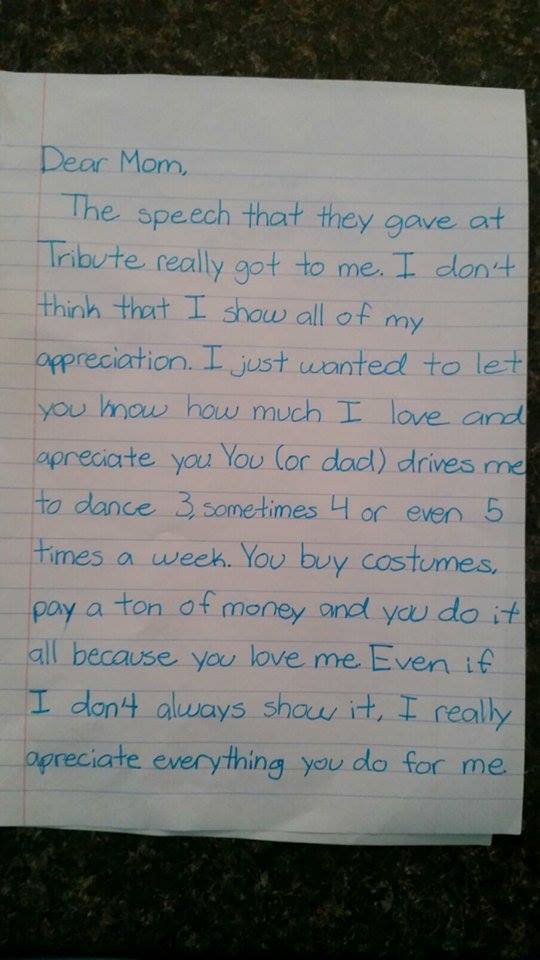 Dear Mom,
The speech that they gave at
Tribute really got to me. I don't
think that I show all of my
appreciation. I just wanted to let
you know how much I love and
apreciate you. You (or dad) drives me
to dance 3, sometimes 4 or even 5
times a week. You buy costumes,
pay a ton of money and you do it
all because you love me. Even if
I don4 always show it, I really
apreciate everything you do for me